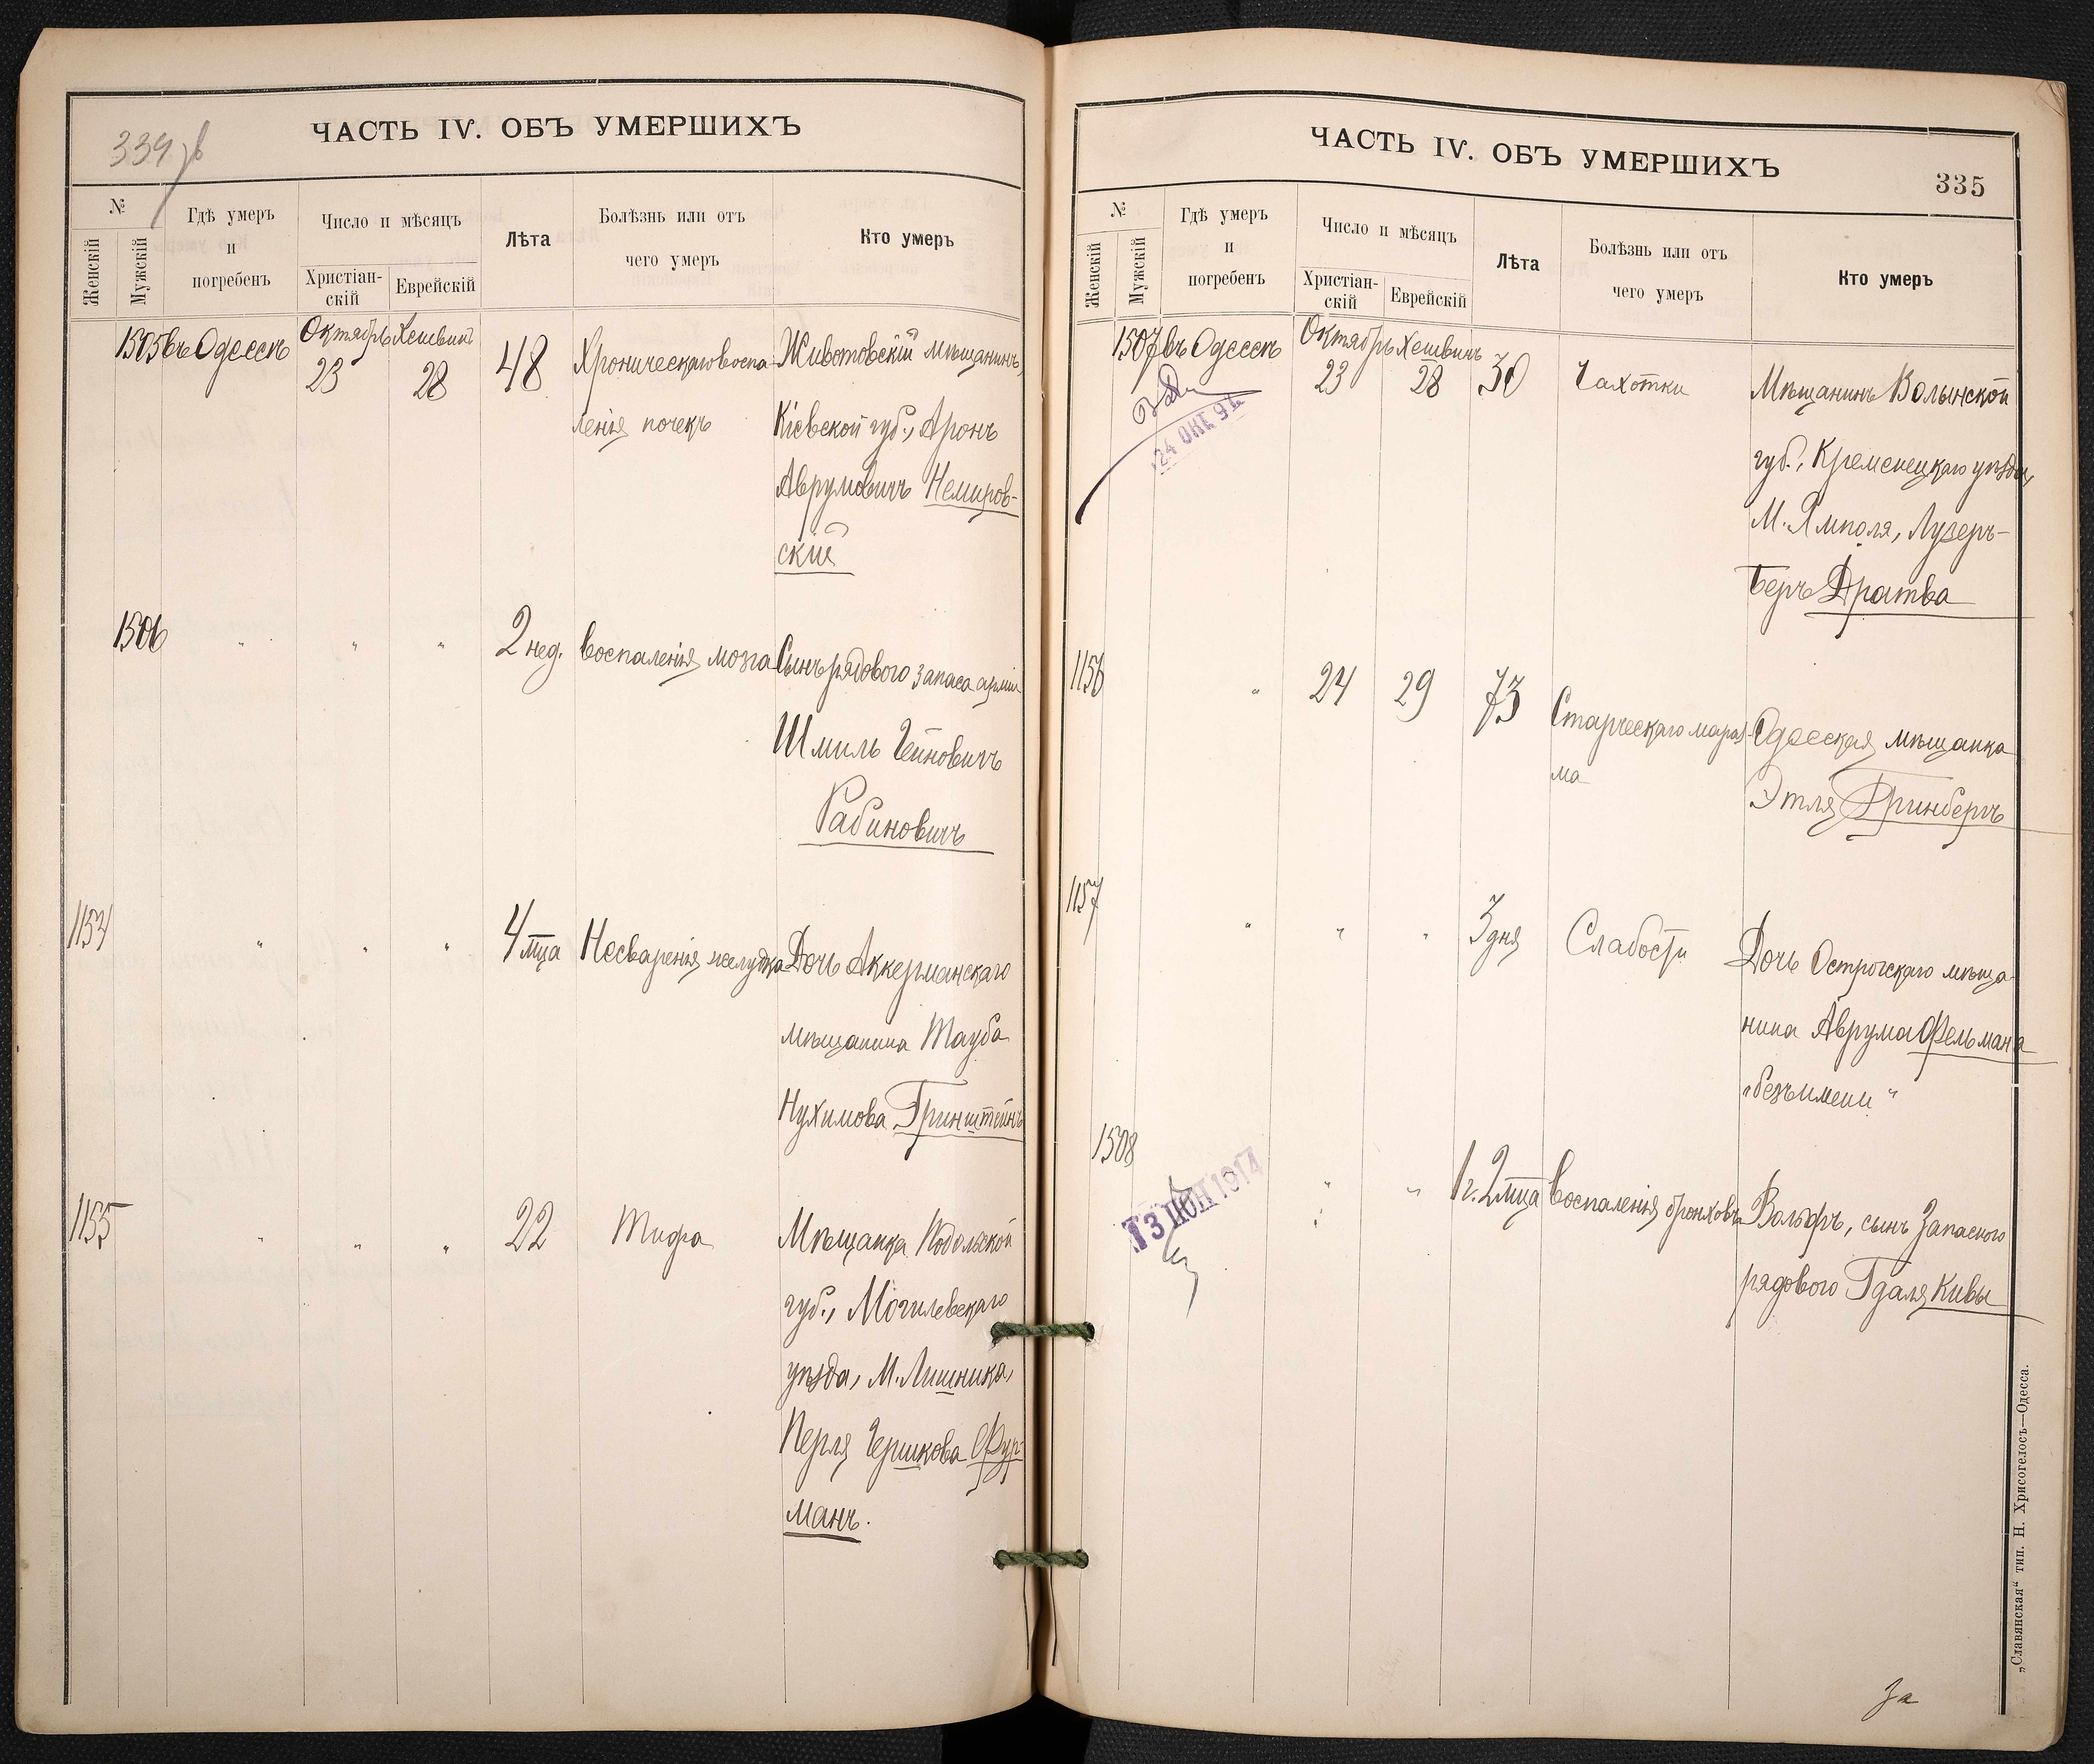 334 об
ЧАСТЬ IV. ОБЪ УМЕРШИХЪ
№
Женскій
Мужскій
Гдѣ умеръ
и
погребенъ
Число и мѣсяцъ
Христіан-
скій
Еврейскій
Лѣта
Болѣзнь или отъ
чего умеръ
Кто умеръ
1505 въ Одессѣ Октябрь Хешвинъ 48 Хроническаго воспа- Животовскій мѣщанинъ,
23 28
ленія почекъ Кіевской губ., Аронъ
Аврумовичъ Немиров-
скій
1506 " " " 2 нед. Воспаленія мозга Сынъ рядового запаса арміи
Шмиль Гейновичъ
Рабиновичъ
1154 " " " 4 мца Несваренія желудка Дочь Аккерманскаго
мѣщанина Тауба
Нухимова Гринштейнъ
1155 " " " 22 Тифа Мѣщанка Подольской
губ., Могилевскаго
уѣзда, М. Лишника,
Перля Гершкова Фур-
манъ.
ЧАСТЬ IV. ОБЪ УМЕРШИХЪ
335
№
Женскій
Мужскій
Гдѣ умеръ
и
погребенъ
Число и мѣсяцъ
Христіан-
скій
Еврейскій
Лѣта
Болѣзнь или отъ
чего умеръ
Кто умеръ
1507 въ Одессѣ Октябрь Хешвинъ 30 Чахотки Мѣщанинъ Волынской
23 28
24 ОКТ. 9
губ., Кременецкаго уѣзда,
М. Ямполя, Лузеръ-
Беръ Дратва
1156 " 24 29 73 Старческаго мараз- Одесская мѣщанка
ма Этля Гринбергъ
1157 " " " 3 дня Слабости Дочь Острогскаго мѣща-
нина Аврума Фельмана
"безъ имени"
1508 " " 1 г. 2 мца Воспаленія бронховъ Вольфъ, сынъ Запасного
13 ІЮН 1914
рядового Гдаля Кивы
За
„Славянская" тип. Н. Хрисогелосъ—Одесса.